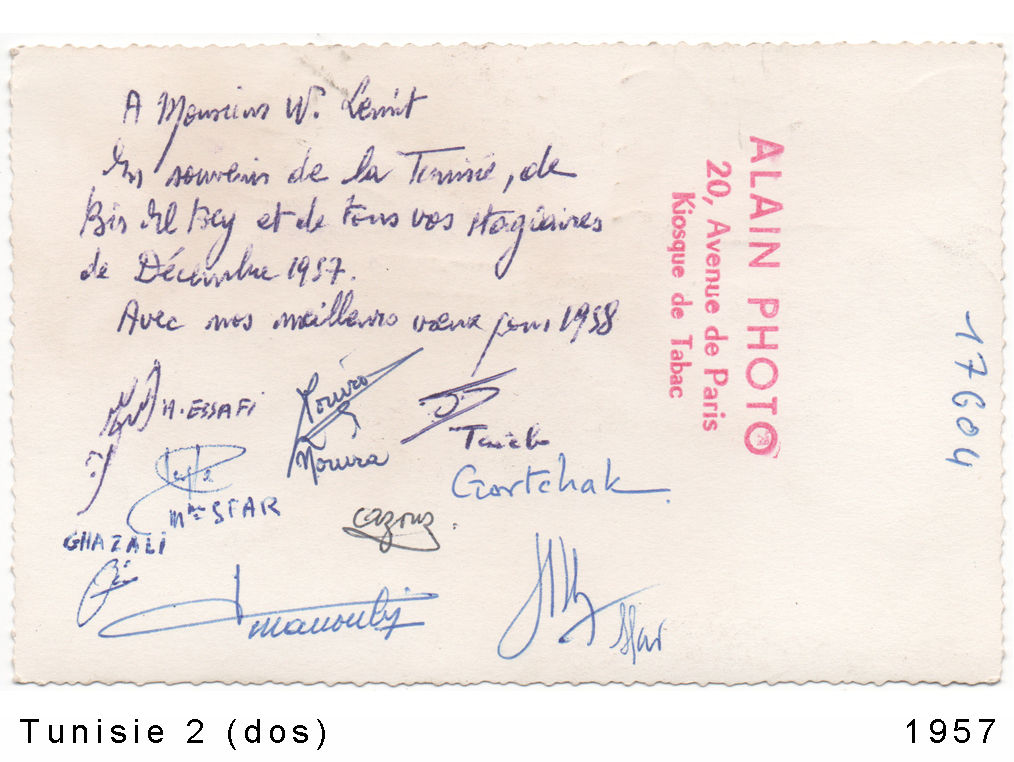 A Monsieur W. Lemit
En souvenir de la Tunisie, de
Bir El Bey et de tous vos stagiaires
de Décembre 1957.
Avec nos meilleurs vœux pour 1958
H. ESSAFI
Nouira
Taïeb
Mme SFAR
Gortchak
GHAZALI
cazouz.
manoubi
Sfar
ALAIN PHOTO
20, Avenue de Paris
Kiosque de Tabac
17604
Tunisie 2 (dos)
1957